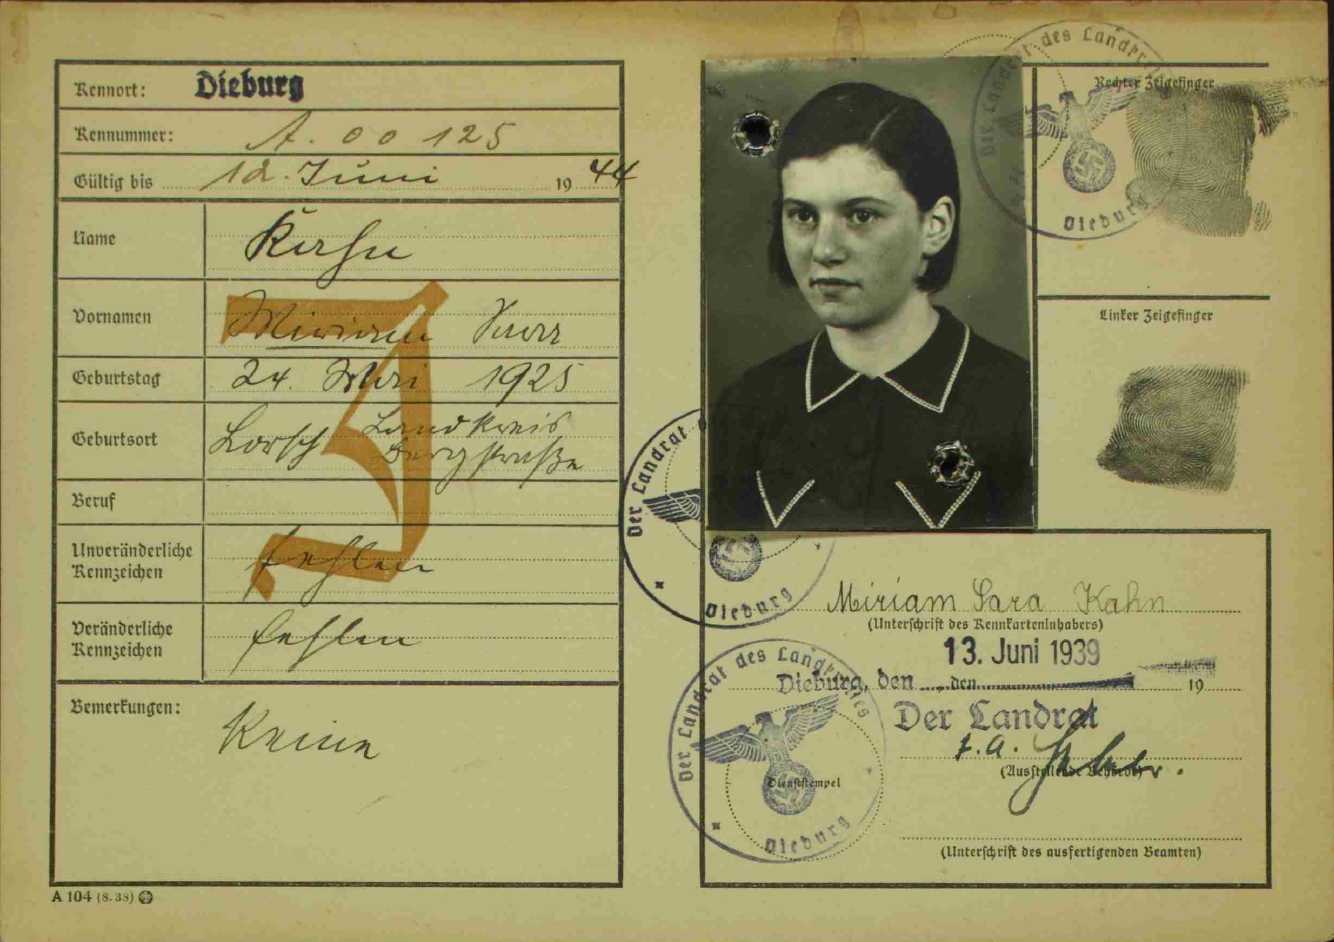 Kennort: Dieburg
Kennummer: A. 00125
Gültig bis 12. Juni 1944
Name Kahn
Vornamen Miriam Sara
Geburtstag 24. Mai 1925
Geburtsort Lorsch Landkreis
Bergstraße
Beruf
Unveränderliche
Kennzeichen fehlen
Veränderliche
Kennzeichen fehlen
Bemerkungen: Keine
J
A 104 (8. 38)
Der Landrat des Landkreises
Dieburg
Rechter Zeigefinger
Linker Zeigefinger
Der Landrat
Dieburg
Miriam Sara Kahn
(Unterschrift des Kennkarteninhabers)
13. Juni 1939
Dieburg, den den 19
Der Landrat
I. A.
(Ausstellende Behörde)
Der Landrat des Landkreises
Dienststempel
Dieburg
(Unterschrift des ausfertigenden Beamten)